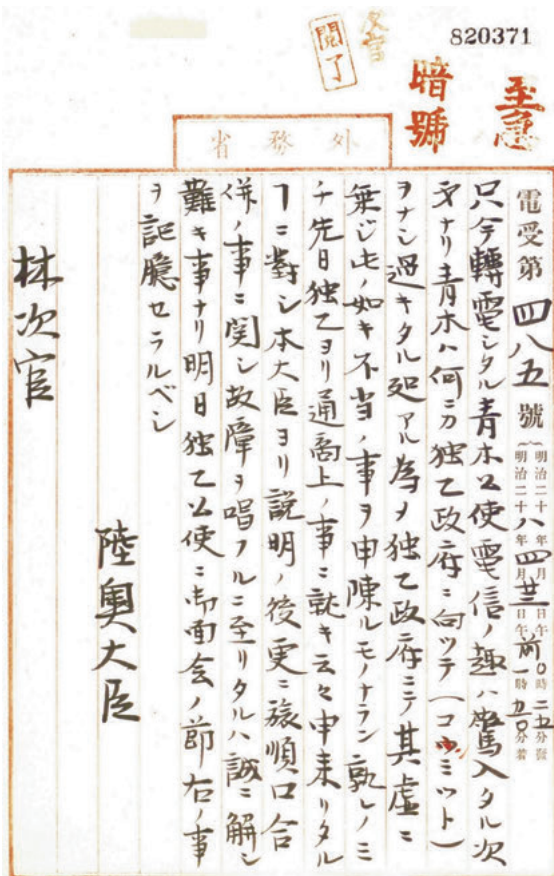 820371
至急
暗號
閲了
外務省
電受第四八五號
明治二十八年四月廿三日午前〇時二五分發
明治二十八年四月廿三日午前一時五〇分着
只今轉電シタル青木公使電信ノ趣ハ驚入タル次
第ナリ青木ハ何ニカ独乙政府ニ向ツテ(コンミット)
ヲナシ過キタル処アル為メ独乙政府ニテ其虚ニ
乗ジ此ノ如キ不当ノ事ヲ申陳ルモノナラン孰レノミ
チ先日独乙ヨリ通商上ノ事ニ就キ云々申来リタル
ヿニ對シ本大臣ヨリ説明ノ後更ニ旅順口合
併ノ事ニ関シ故障ヲ唱フルニ至リタルハ誠ニ解シ
難キ事ナリ明日独乙公使ニ御面会ノ節右ノ事
ヲ記臆セラルベシ
陸奥大臣
林次官